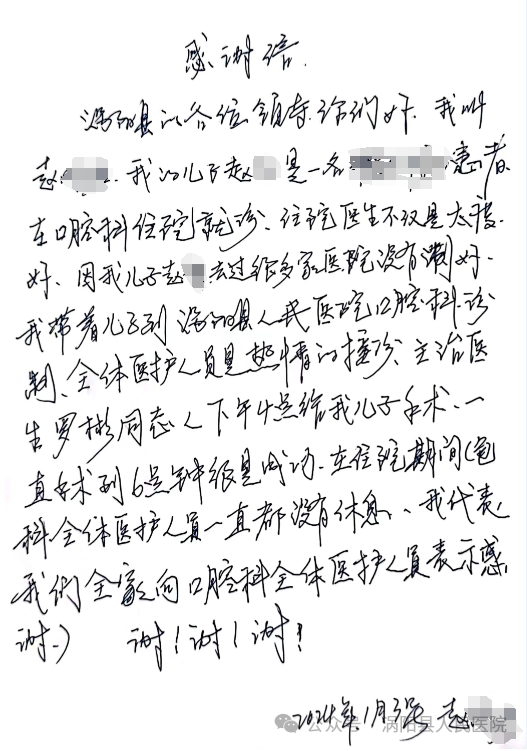 感谢信
涡阳县的各位领导你们好、我叫
赵 我的儿子赵 是一名 患者
在口腔科住院就诊、住院医生不仅是太度
好、因我儿子赵 去过很多家医院没有治好.
我带着儿子到涡阳县人民医院口腔科诊
、全体医护人员是热情的接诊、主治医
生罗彬同志、下午4点给我儿子手术、一
直手术到6点钟很是成功.在住院期间(
科全体医护人员一直都没有休息、、我代表
我们全家向口腔科全体医护人员表示感
谢.) 谢!谢!谢!
2024年1月3号 赵
公众号 涡阳县人民医院